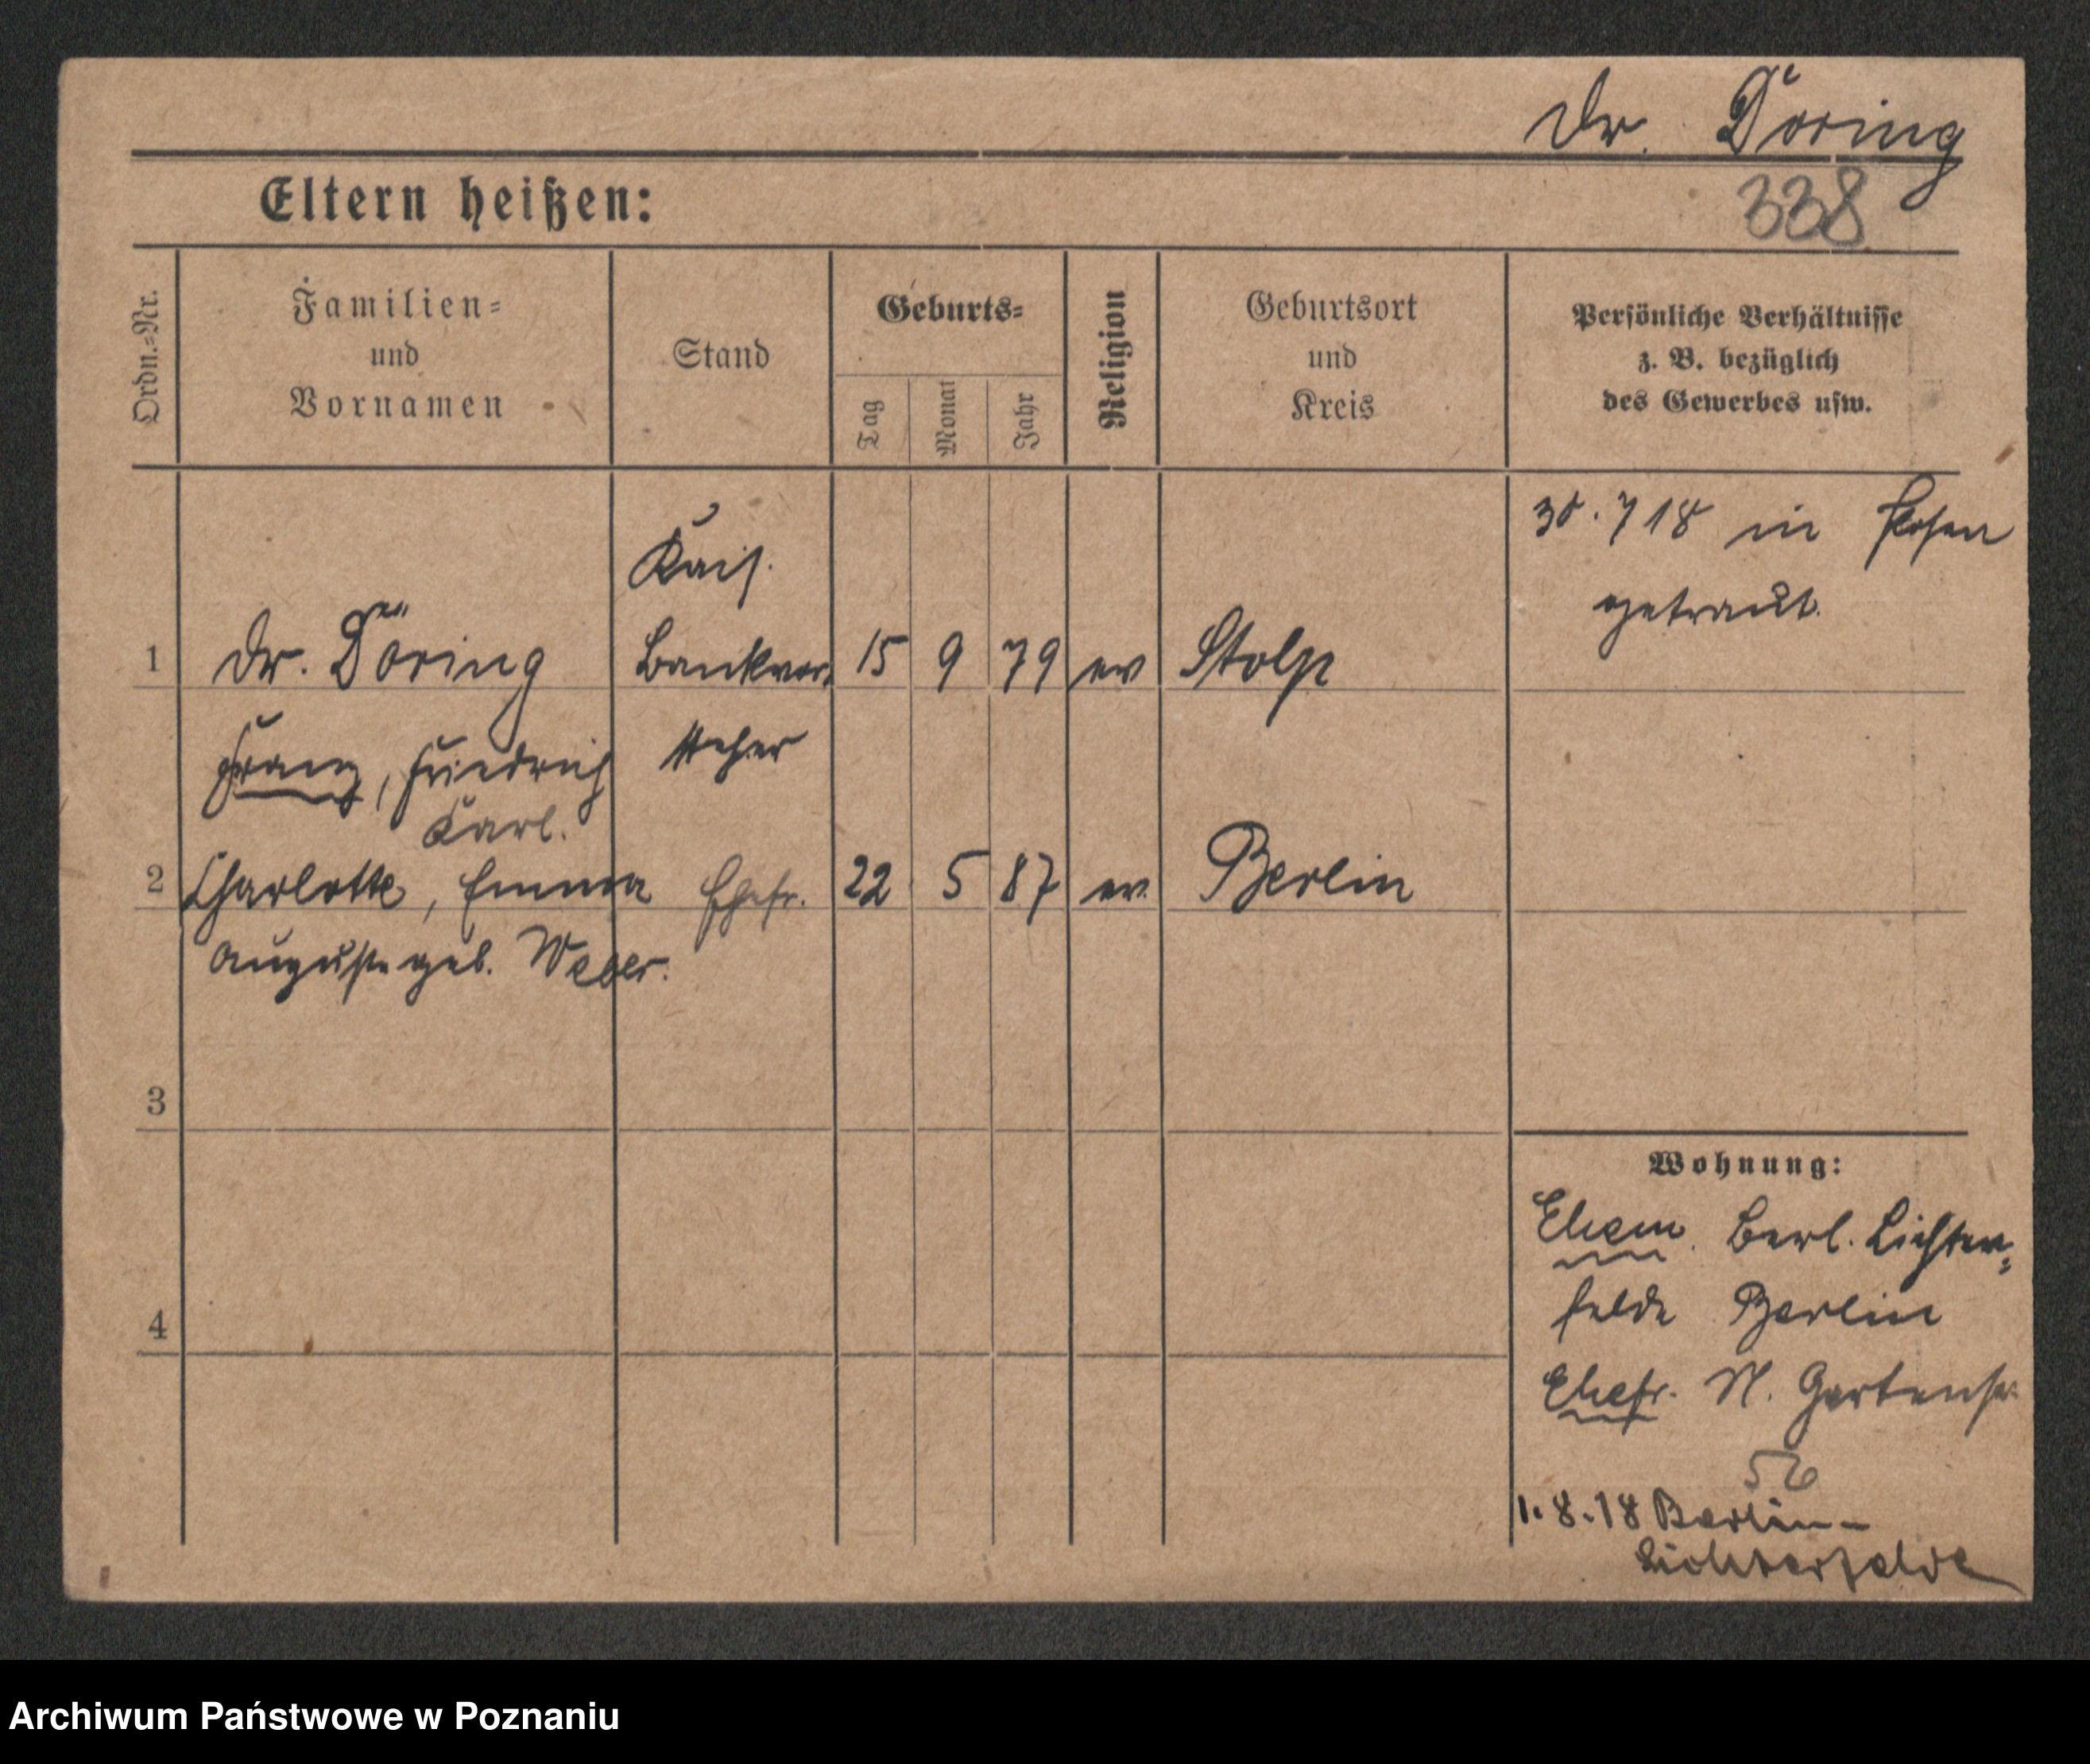 Dr. Döring
338
Eltern heißen:
Ordn.-Nr.
Familien-
und
Vornamen
Stand
Geburts-
Tag
Monat
Jahr
Religion
Geburtsort
und
Kreis
Persönliche Verhältnisse
z. B. bezüglich
des Gewerbes usw.
30.7 18 in Posen
getraut.
Kais.
1 Dr. Döring Bankvor- 15 9 79 ev Stolp
Franz, Friedrich steher
Karl.
2 Charlotte, Emma Ehefr. 22 5 87 ev. Berlin
Auguste geb. Weber.
3
4
Wohnung:
Ehem. Berl. Lichter-
felde Berlin
Ehefr. N. Gartenstr.
56
1.8.18 Berlin-
Lichterfelde
Archiwum Państwowe w Poznaniu